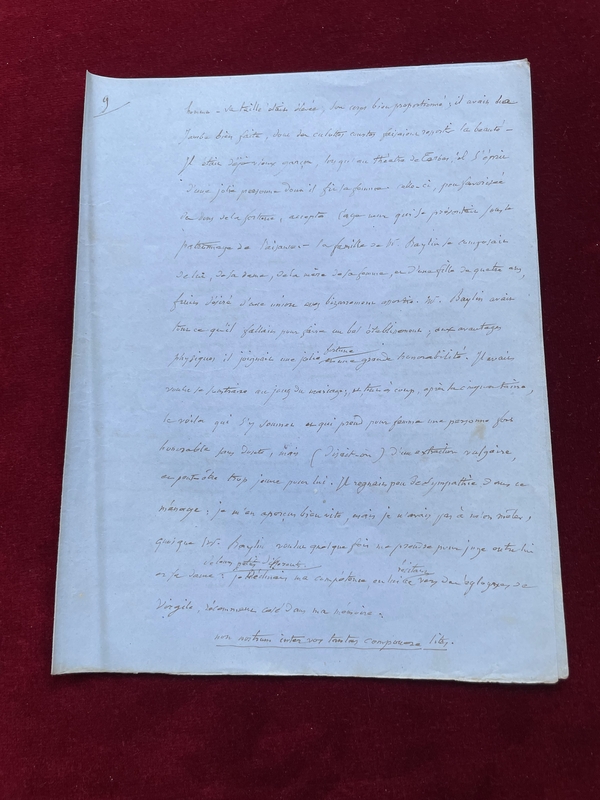 9
taille était élevée, son corps bien proportionné ; il avait la
jambe bien faite, dont des culottes courtes faisaient ressortir la beauté -
Il était déjà vieux garçon, lorsqu'au théâtre de il s'éprit
d'une jolie personne dont il fit sa femme. celle-ci, peu favorisée
des dons de la fortune, accepta l'age mur qui se présentait sous le
patronage de l'aisance - la famille de Mr. Baylin se composait
de lui, de sa dame, de la mère de sa femme, et d'une fille de quatre ans,
fruit désiré d'une union assez bizarrement assortie. Mr. Baylin avait
tout ce qu'il fallait pour faire un bel établissement ; aux avantages
physiques il joignait une jolie fortune et une grande honorabilité. Il avait
se soustraire au joug du mariage, et tout à coup, après la cinquantaine,
le voilà qui s'y soumet et qui prend pour femme une personne fort
honorable sans doute, mais (disait-on) d'une extraction vulgaire,
et peut-être trop jeune pour lui. Il régnait peu de sympathie dans ce
ménage ; je m'en aperçus bien vite, mais je n'avais pas à m'en mêler,
quoique Mr. Baylin voulut quelquefois me prendre pour juge entre lui
petits différents. récitant
et sa dame ; je déclinais ma compétence, en lui ce vers des églogues de
Virgile, récemment casé dans ma mémoire.
non nostrum inter vos tantas componere lites.